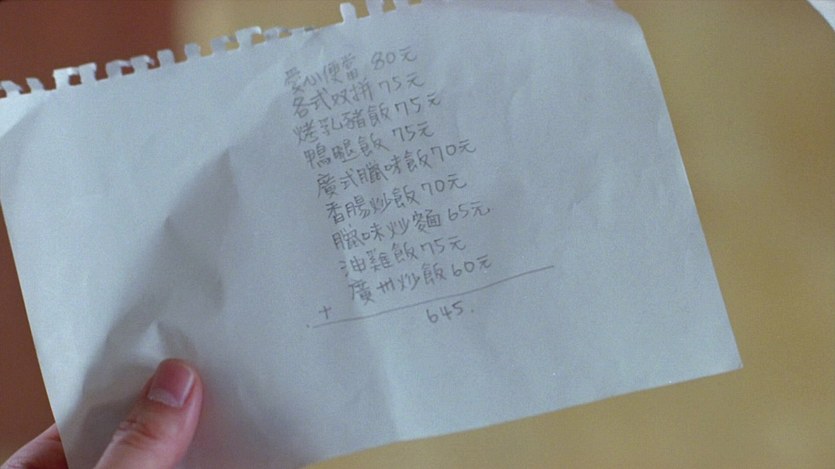 愛心便當 80元
各式双拼 75元
烤乳豬飯 75元
鴨腿飯 75元
廣式臘味飯 70元
香腸炒飯 70元
臘味炒麵 65元
油雞飯 75元
廣州炒飯 60元
+
645.